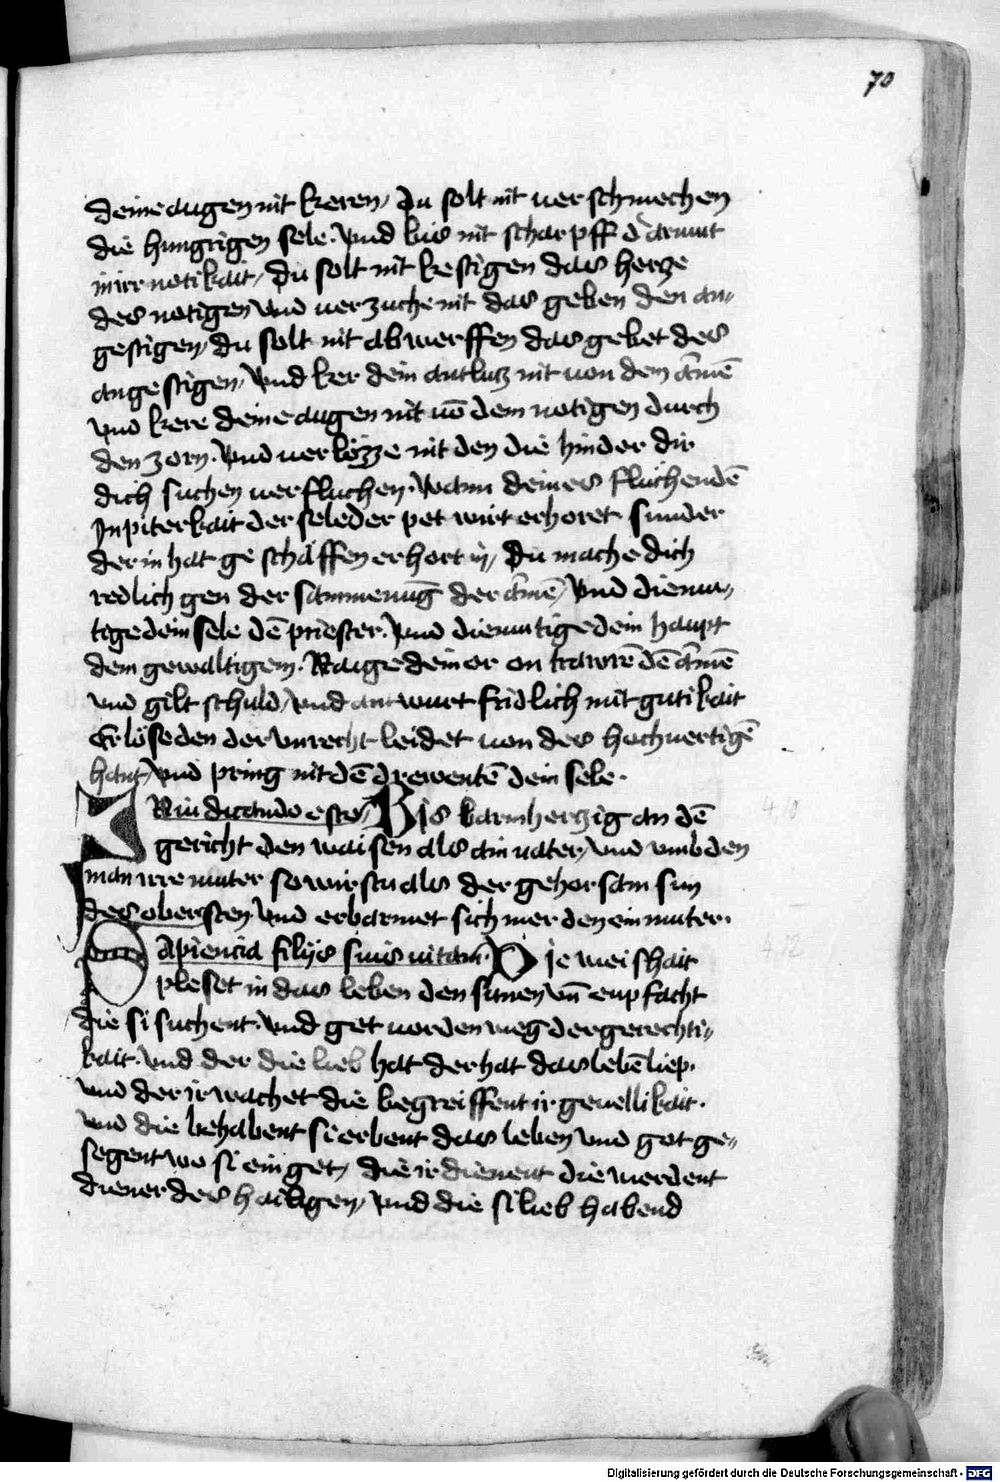 70
deine augen nit keren / Du solt nit uer schmechen
die hungrigen sele · Vnd bis nit scharpff d armut
in irr notikait / du solt nit kestigen das hercze
des notigen Vnd uer zuche nit das geben den an„
gestigen / du solt nit ab werffen das gebet des
ange stigen / Vnd ker dein antlucz nit uon dem arme͂
vnd kere deine augen nit uo͂ dem notigen durch
den zorn · Vnd uer lözze nit den die hinder dir
dich suchen uer fluchen · Wann deines fluchende͂
Jn piterkait der sele der pet wirt erhoret sunder
der in hat ge schaffen erhort in / Du mache dich
redlich gen der sammenu͂g der arme͂ / Vnd diemu„
tige dein sele de͂ priester · Vnd diemutige dein haupt
dem gewaltigem · Naige dein or on trawre͂ de͂ arme͂
vnd gilt schuld / Vnd antwurt fridlich mit gutikait
Erlöse den der vnrecht leidet uon des hochuertige͂
hant / Vnd pring nit de͂ drewente͂ dein sele ·
JN iudicando esto / Bis barmherczig an de͂
gericht den waisen als ain uater / Vnd vmb den
man irre muter so wirstu als der gehorsam sun
des obersten Vnd erbarmet sich mer den ein muter ·
Sapiencia filijs suis uitam · Die weishait
pleset in das leben den sunen vn͂ enpfacht
die si suchent · Vnd get uor den weg der gerechti„
kait · Vnd der die lieb hat der hat das lebe͂ liep ·
vnd der ir wachet die begreiffent ir geuellikait ·
Vnd die behabent si erbent das leben Vnd got ge„
segent wo si ein get / die ir dienent die werdent
diener des hailigen / Vnd die si lieb habend
4,10
4,12
Digitalisierung gefördert durch die Deutsche Forschungsgemeinschaft - DFG